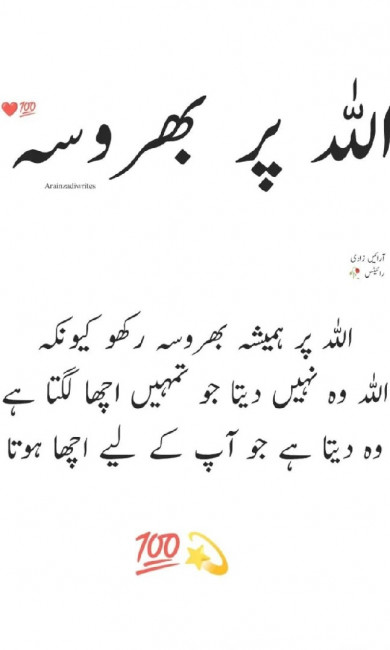 اللہ پر بھروسہ ❤️💯
Arainzadiwrites
آرائیں زادی
رائیٹس 🥀
اللہ پر ہمیشہ بھروسہ رکھو کیونکہ
اللہ وہ نہیں دیتا جو تمہیں اچھا لگتا ہے
وہ دیتا ہے جو آپ کے لیے اچھا ہوتا
💯💫